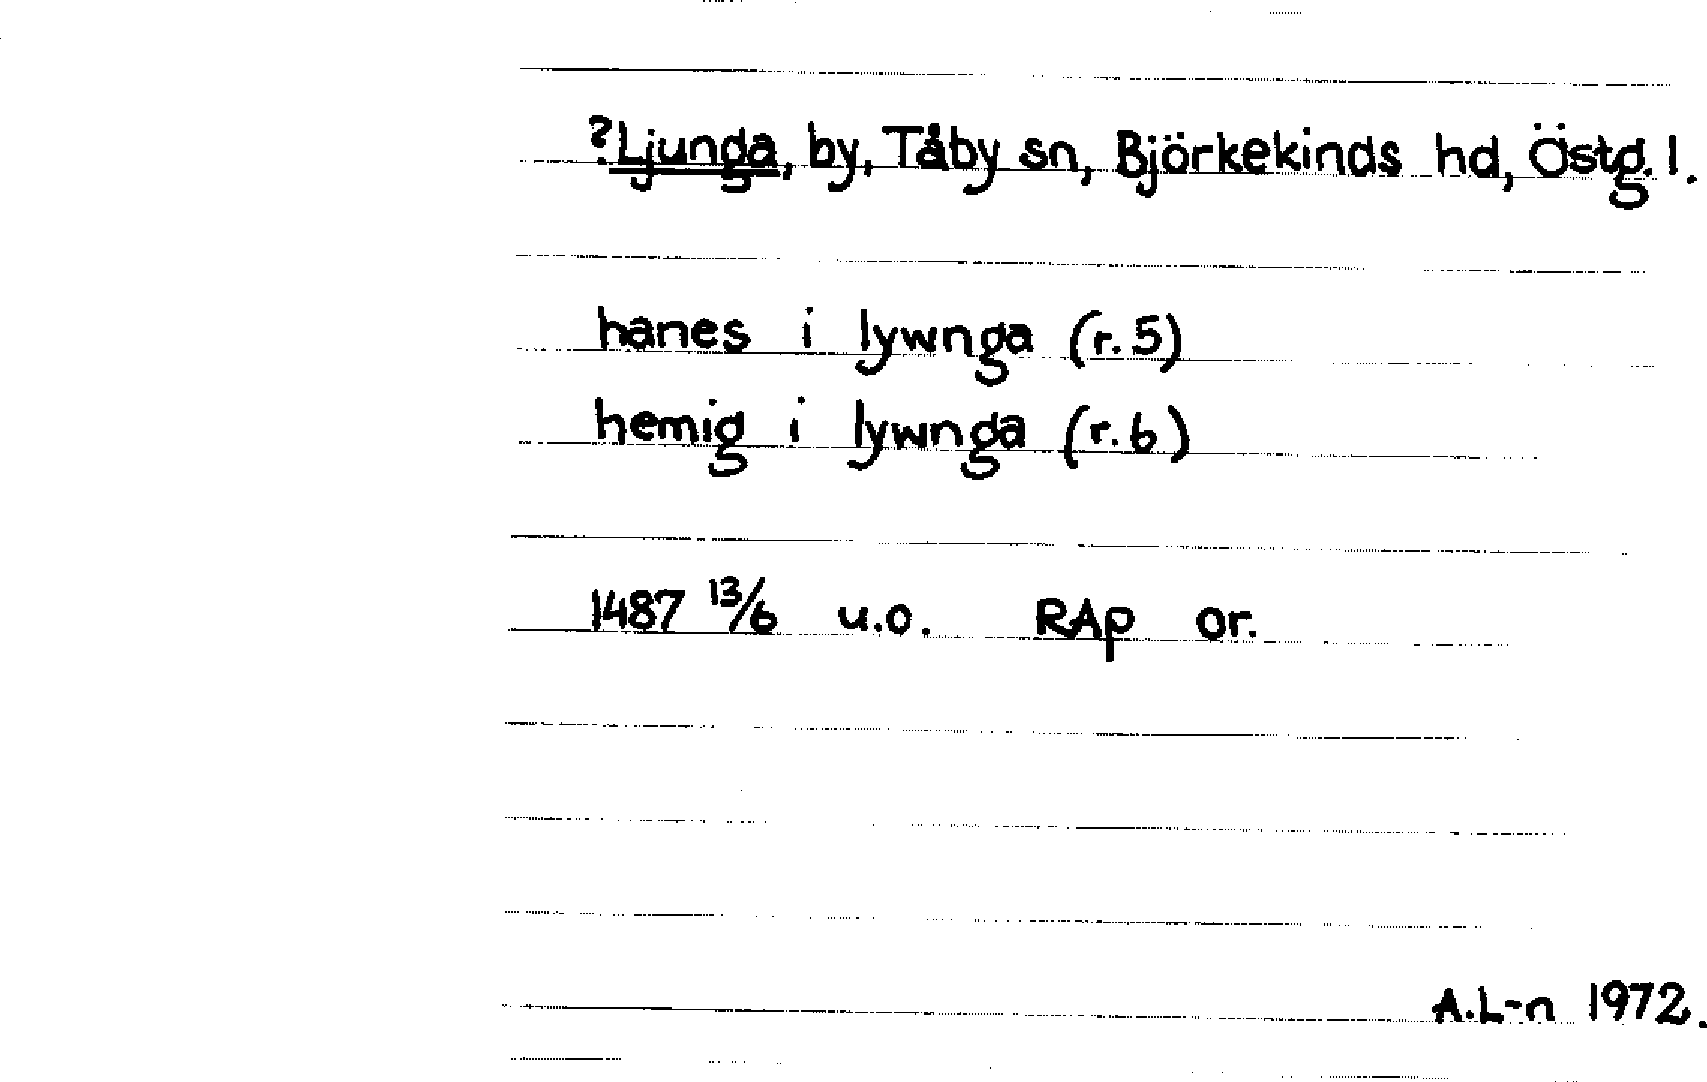 ?Ljunga, by, Tåby sn, Björkekinds hd, Östg. l.
hanes i lywnga (r. 5)
hemig i lywnga (r. 6)
1487 13/6 u.o. RAp or.
A.L-n 1972.